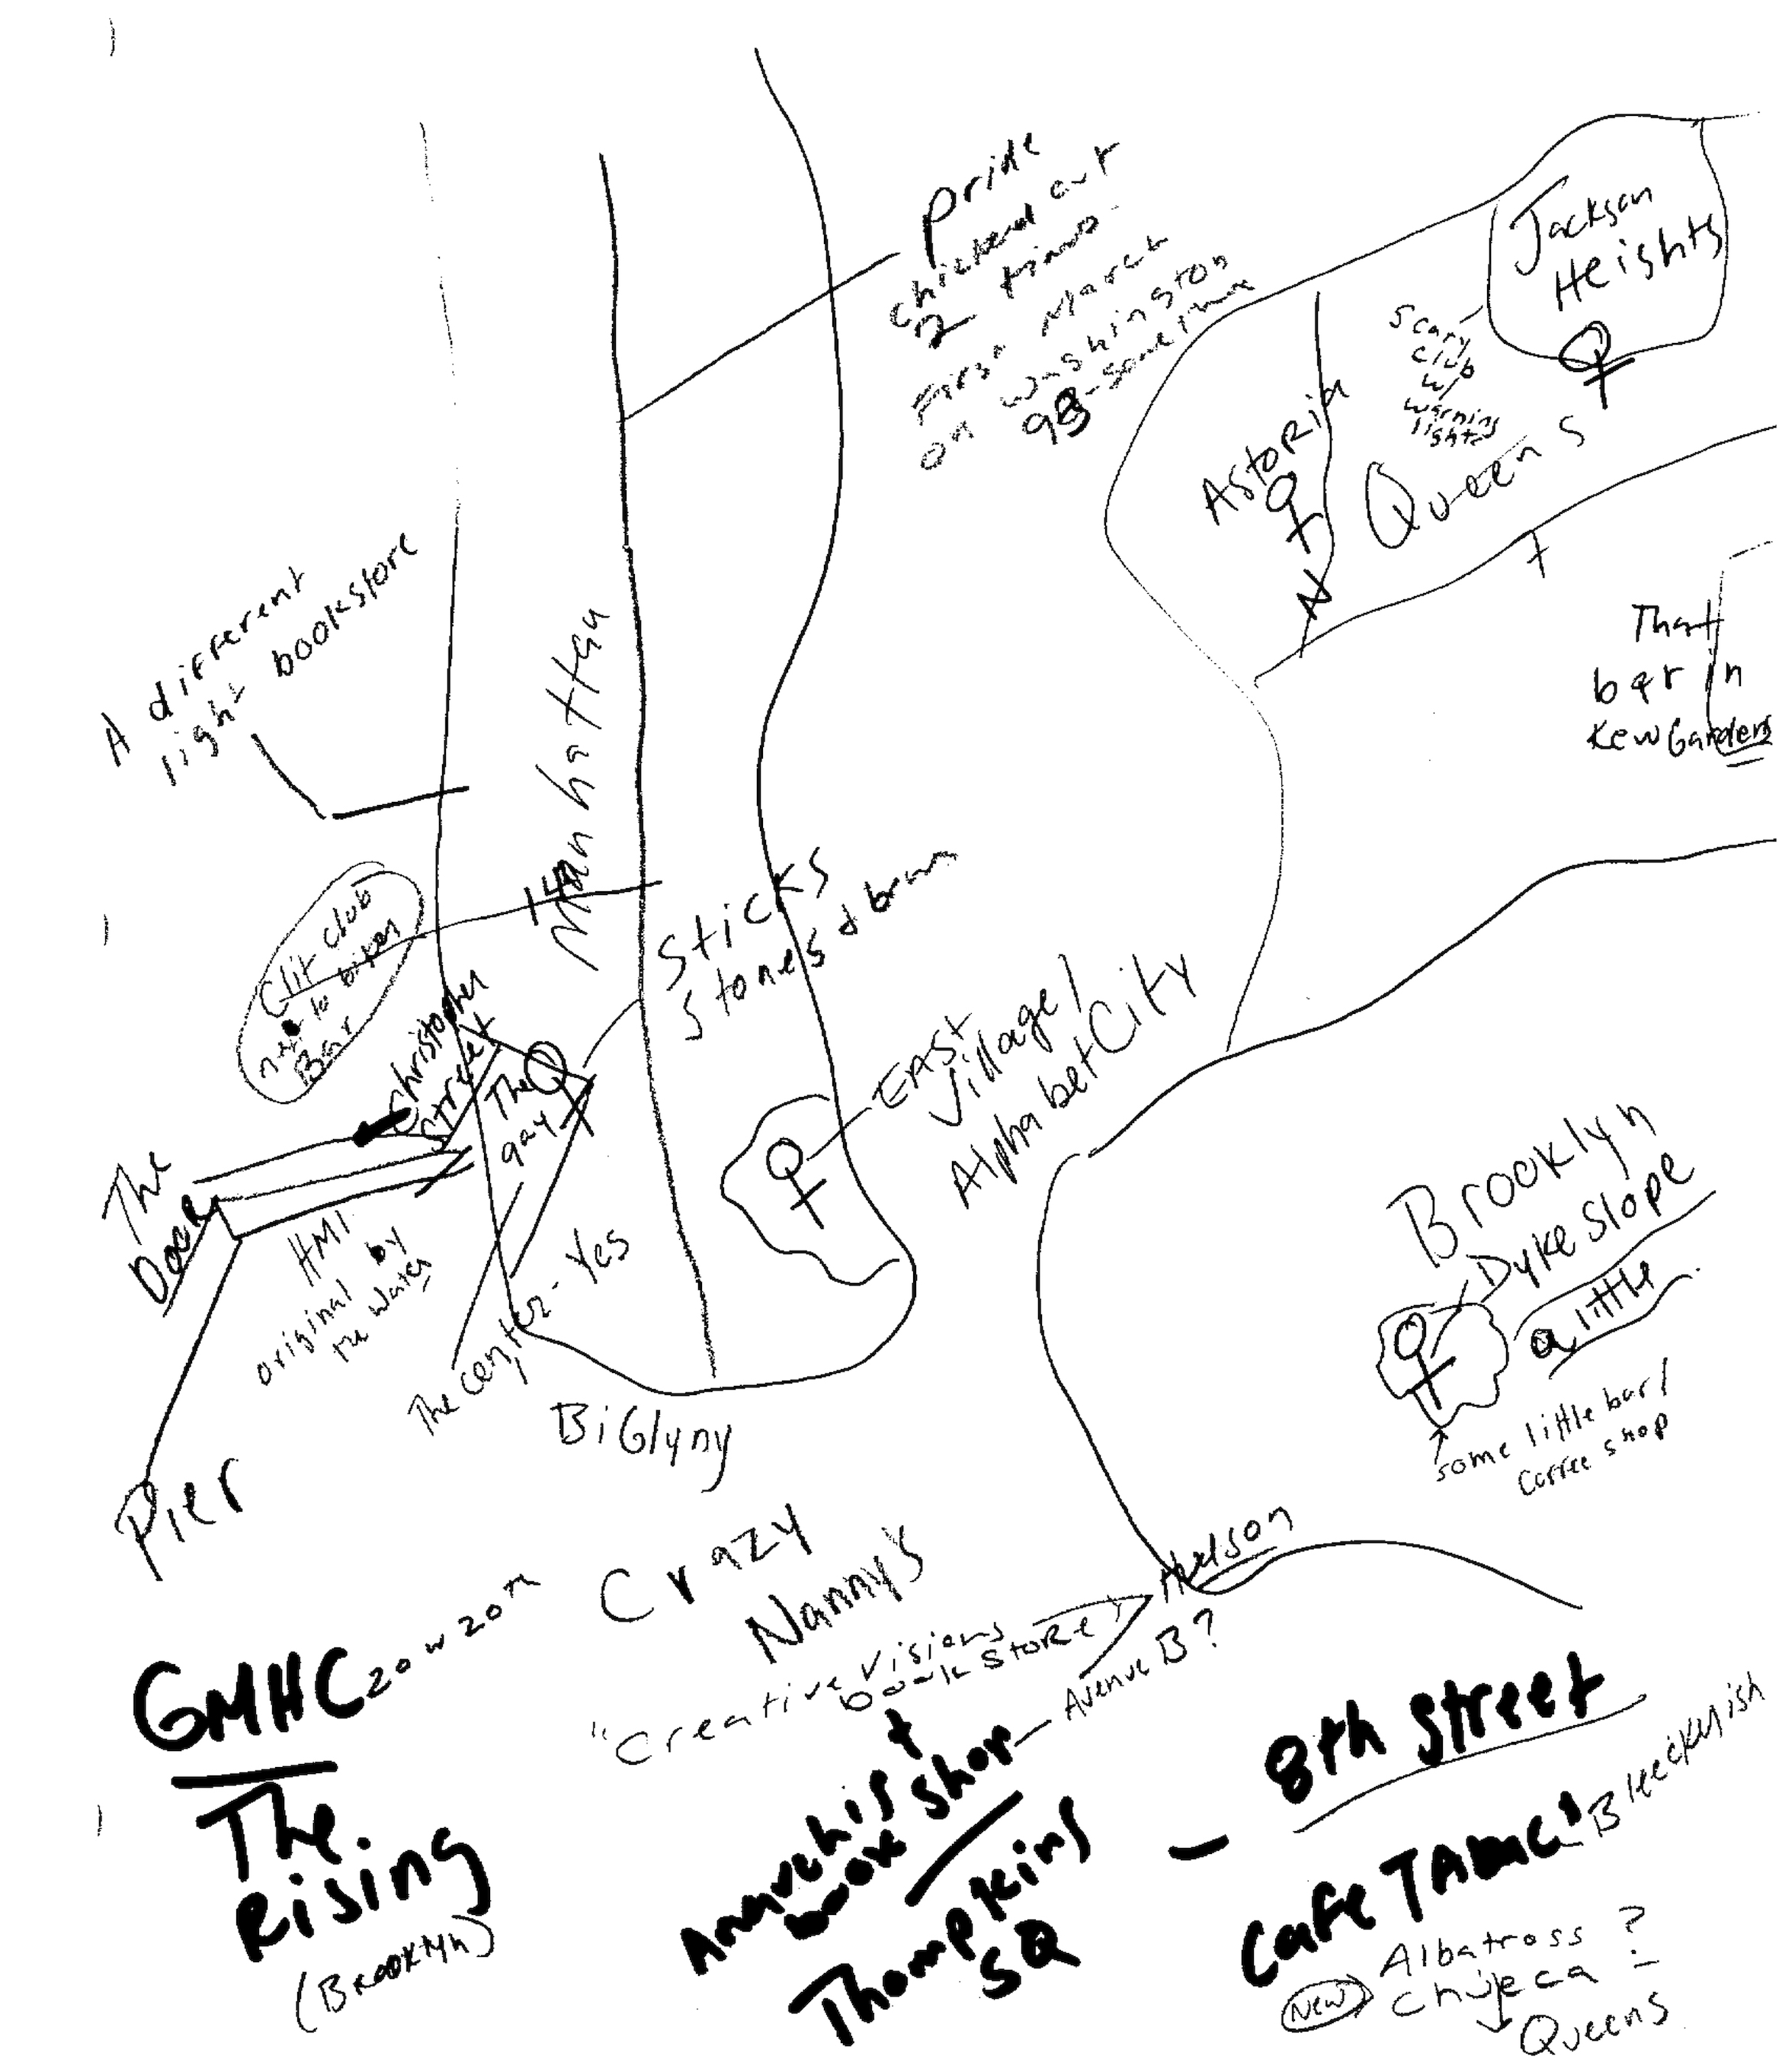 Pride
chickened out
2 times
First March
on Washington
93-sometime
Jackson
Heights
scary
club
w/
warning
lights
Astoria
Queens
N
7
That
bar in
Kew Gardens
A different
light bookstore
Manhattan
14
Sticks
stones & brews
Clit club
next to biker
Bar
Christopher
Street
The
gay
East
Village/
Alphabet City
The
Door
HMI
original by
the water
The center - Yes
Pier
BiGlyny
Brooklyn
Dyke Slope
a little
some little bar/
coffee shop
Crazy
Nanny's
GMHC 20 W 20th
The
Rising
(Brooklyn)
"Creative Visions
book store"
Hudson
+
Anarchist
book shop
Avenue B?
Thompkins
SQ
8th Street
Cafe
Bleekyish
Albatross ?
(New) Chueca ?
Queens